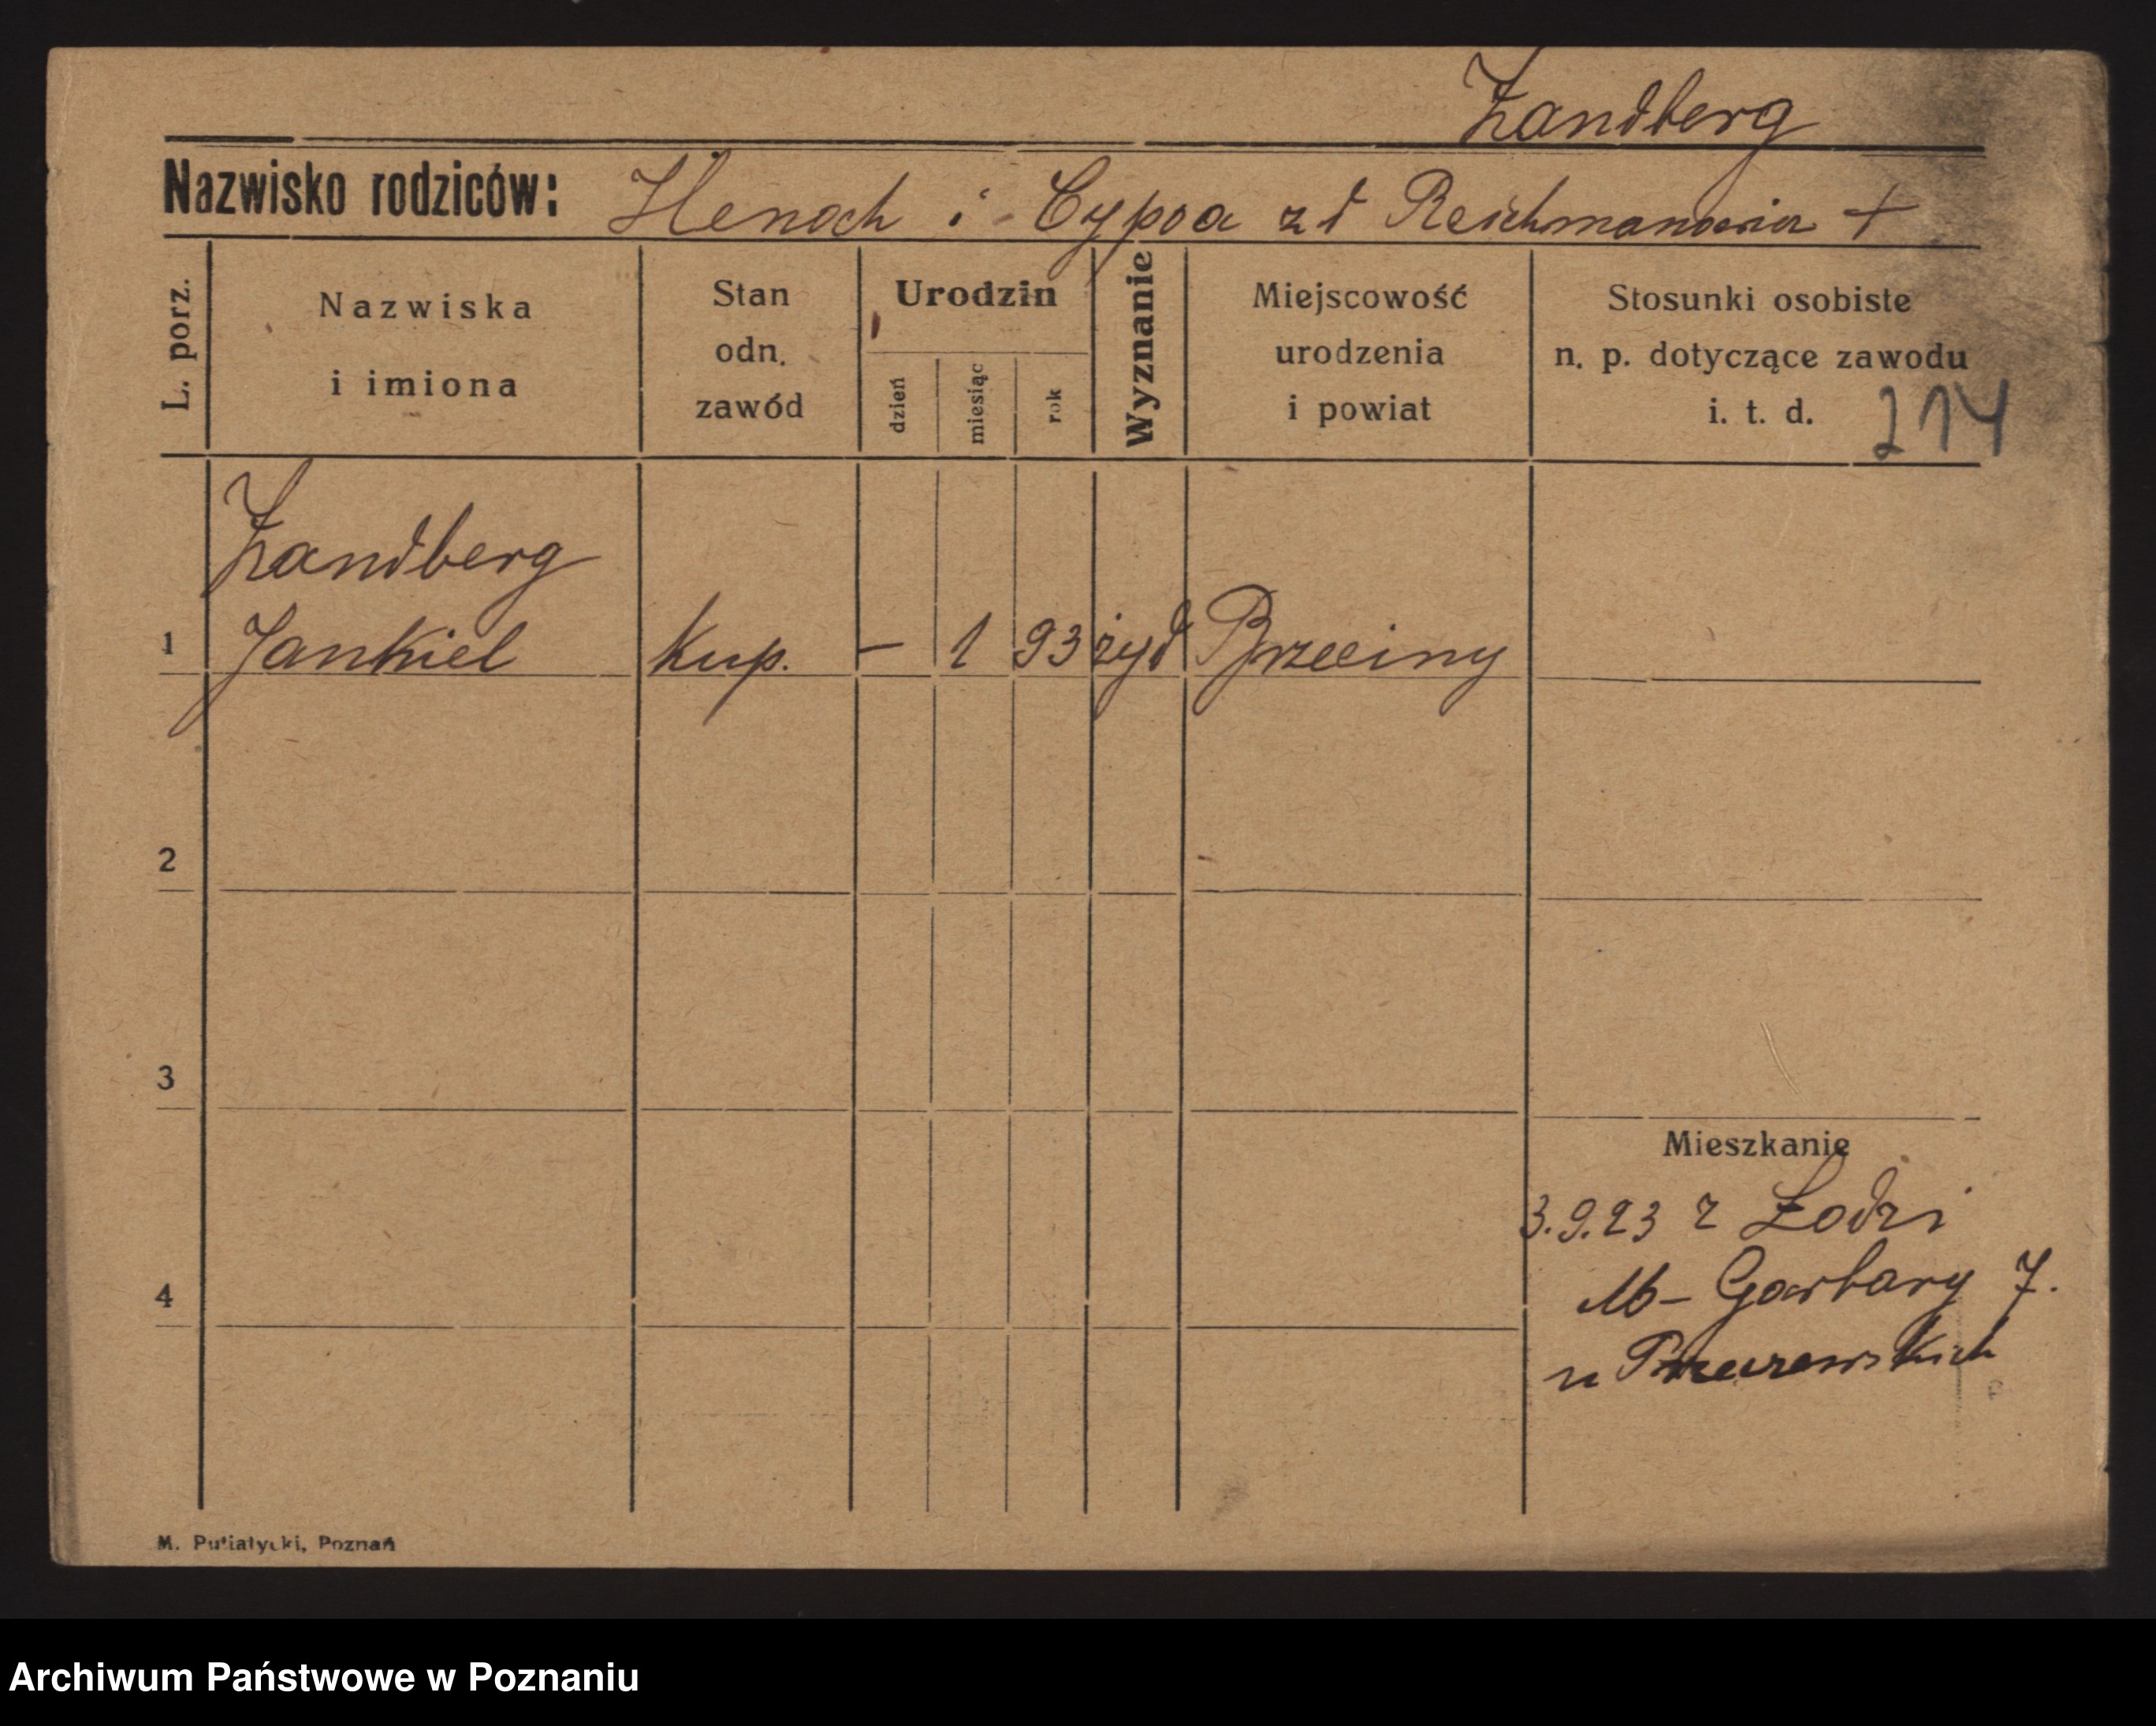 Zandberg
Nazwisko rodziców: Henoch i Cypra zd Reichmanowicz +
L. porz.
Nazwiska
i imiona
Stan
odn.
zawód
Urodzin
dzień
miesiąc
rok
Wyznanie
Miejscowość
urodzenia
i powiat
Stosunki osobiste
n. p. dotyczące zawodu
i. t. d.
214
Zandberg
1 Jankiel Kup. – 1 93 żyd Brzeziny
2
3
Mieszkanie
3.9.23 z Łodzi
4
Garbary 7.
u
M. Putiatycki, Poznań
Archiwum Państwowe w Poznaniu